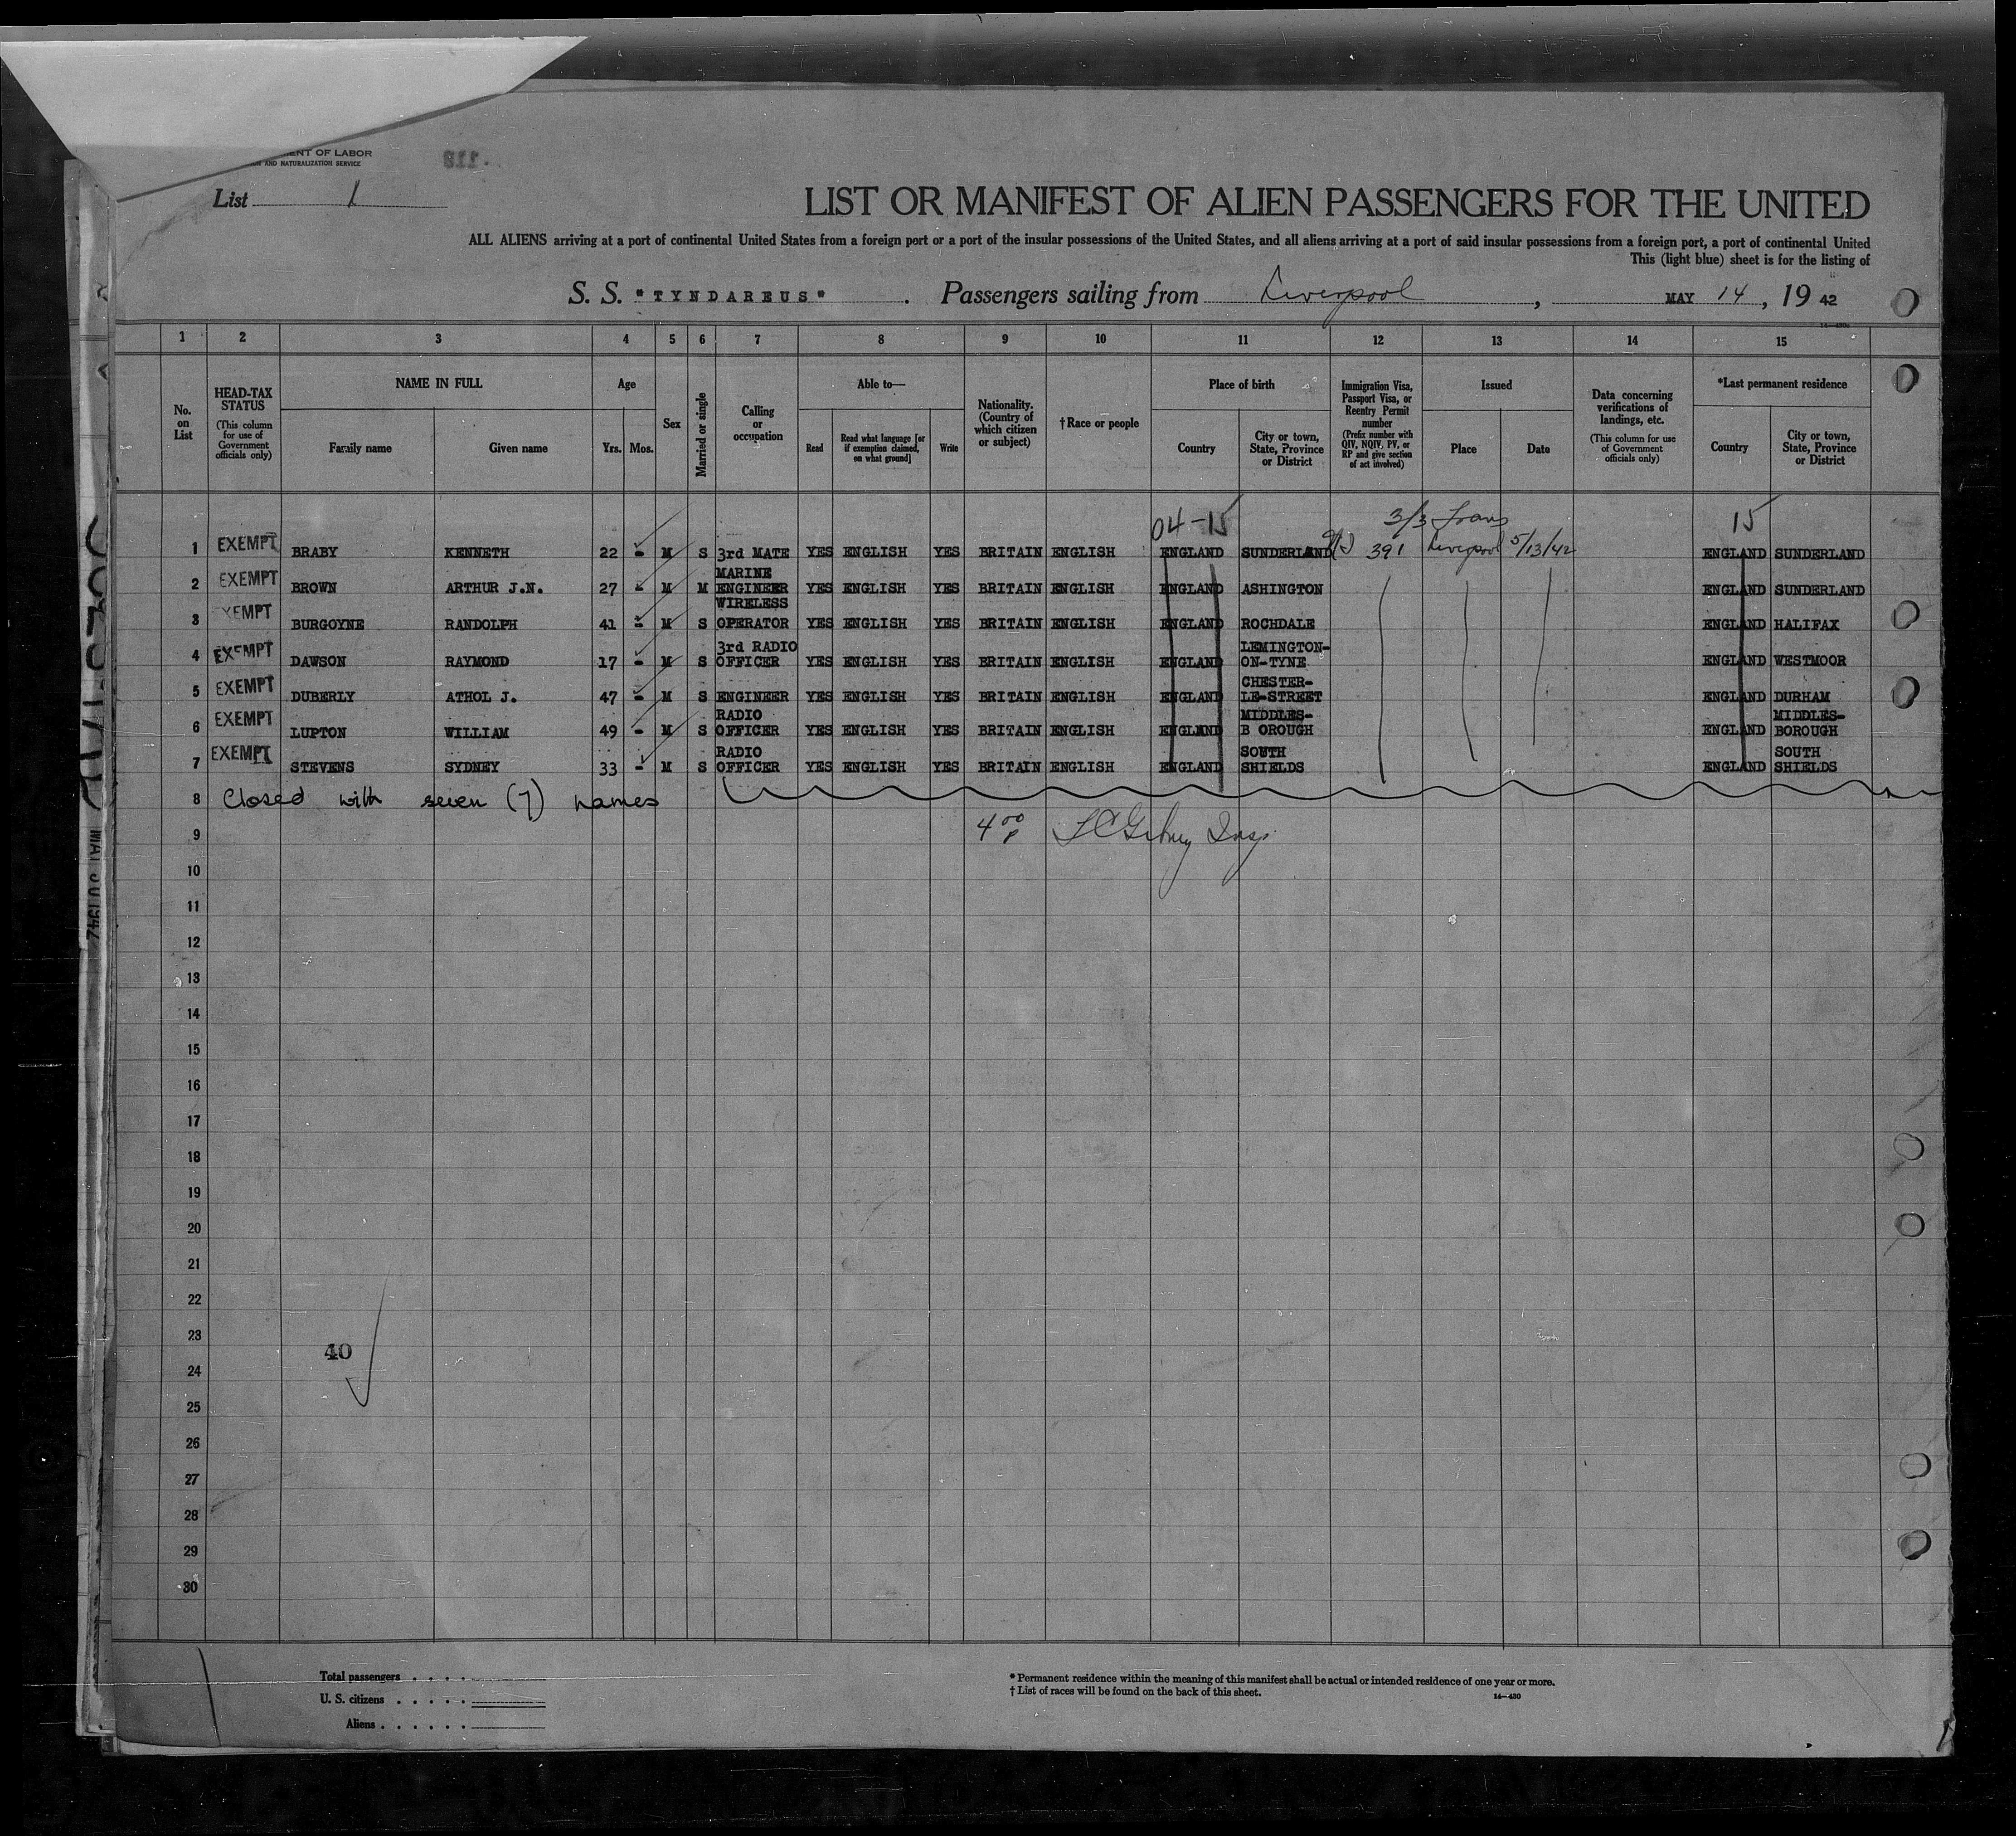 MENT OF LABOR
AND NATURALIZATION SERVICE
List 1
LIST OR MANIFEST OF ALIEN PASSENGERS FOR THE UNITED
ALL ALIENS arriving at a port of continental United States from a foreign port or a port of the insular possessions of the United States, and all aliens arriving at a port of said insular possessions from a foreign port, a port of continental United
This (light blue) sheet is for the listing of
S. S. "TYNDAREUS" . Passengers sailing from Liverpool , MAY 14 , 19 42
1 2 3 4 5 6 7 8 9 10 11 12 13 14 15
No. on List
HEAD-TAX STATUS (This column for use of Government officials only)
NAME IN FULL
Family name Given name
Age
Yrs. Mos.
Sex
Married or single
Calling or occupation
Able to—
Read Read what language [or if exemption claimed, on what ground] Write
Nationality. (Country of which citizen or subject)
†Race or people
Place of birth
Country City or town, State, Province or District
Immigration Visa, Passport Visa, or Reentry Permit number (Prefix number with QIV, NQIV, PV, or RP and give section of act involved)
Issued
Place Date
Data concerning verifications of landings, etc. (This column for use of Government officials only)
*Last permanent residence
Country City or town, State, Province or District
04-15 3/3 Trans 15
1 EXEMPT BRABY KENNETH 22 - M S 3rd MATE YES ENGLISH YES BRITAIN ENGLISH ENGLAND SUNDERLAND 391 Liverpool 5/13/42 ENGLAND SUNDERLAND
2 EXEMPT BROWN ARTHUR J.N. 27 - M M MARINE ENGINEER YES ENGLISH YES BRITAIN ENGLISH ENGLAND ASHINGTON ENGLAND SUNDERLAND
3 EXEMPT BURGOYNE RANDOLPH 41 - M S WIRELESS OPERATOR YES ENGLISH YES BRITAIN ENGLISH ENGLAND ROCHDALE ENGLAND HALIFAX
4 EXEMPT DAWSON RAYMOND 17 - M S 3rd RADIO OFFICER YES ENGLISH YES BRITAIN ENGLISH ENGLAND LEMINGTON-ON-TYNE ENGLAND WESTMOOR
5 EXEMPT DUBERLY ATHOL J. 47 - M S ENGINEER YES ENGLISH YES BRITAIN ENGLISH ENGLAND CHESTER-LE-STREET ENGLAND DURHAM
6 EXEMPT LUPTON WILLIAM 49 - M S RADIO OFFICER YES ENGLISH YES BRITAIN ENGLISH ENGLAND MIDDLES-B OROUGH ENGLAND MIDDLES-BOROUGH
7 EXEMPT STEVENS SYDNEY 33 - M S RADIO OFFICER YES ENGLISH YES BRITAIN ENGLISH ENGLAND SOUTH SHIELDS ENGLAND SOUTH SHIELDS
8 Closed with seven (7) names
9 4 00 P
10
11
12
13
14
15
16
17
18
19
20
21
22
23
40
24
25
26
27
28
29
30
Total passengers . . . .
U. S. citizens . . . . .
Aliens . . . . . .
* Permanent residence within the meaning of this manifest shall be actual or intended residence of one year or more.
† List of races will be found on the back of this sheet.
14—430